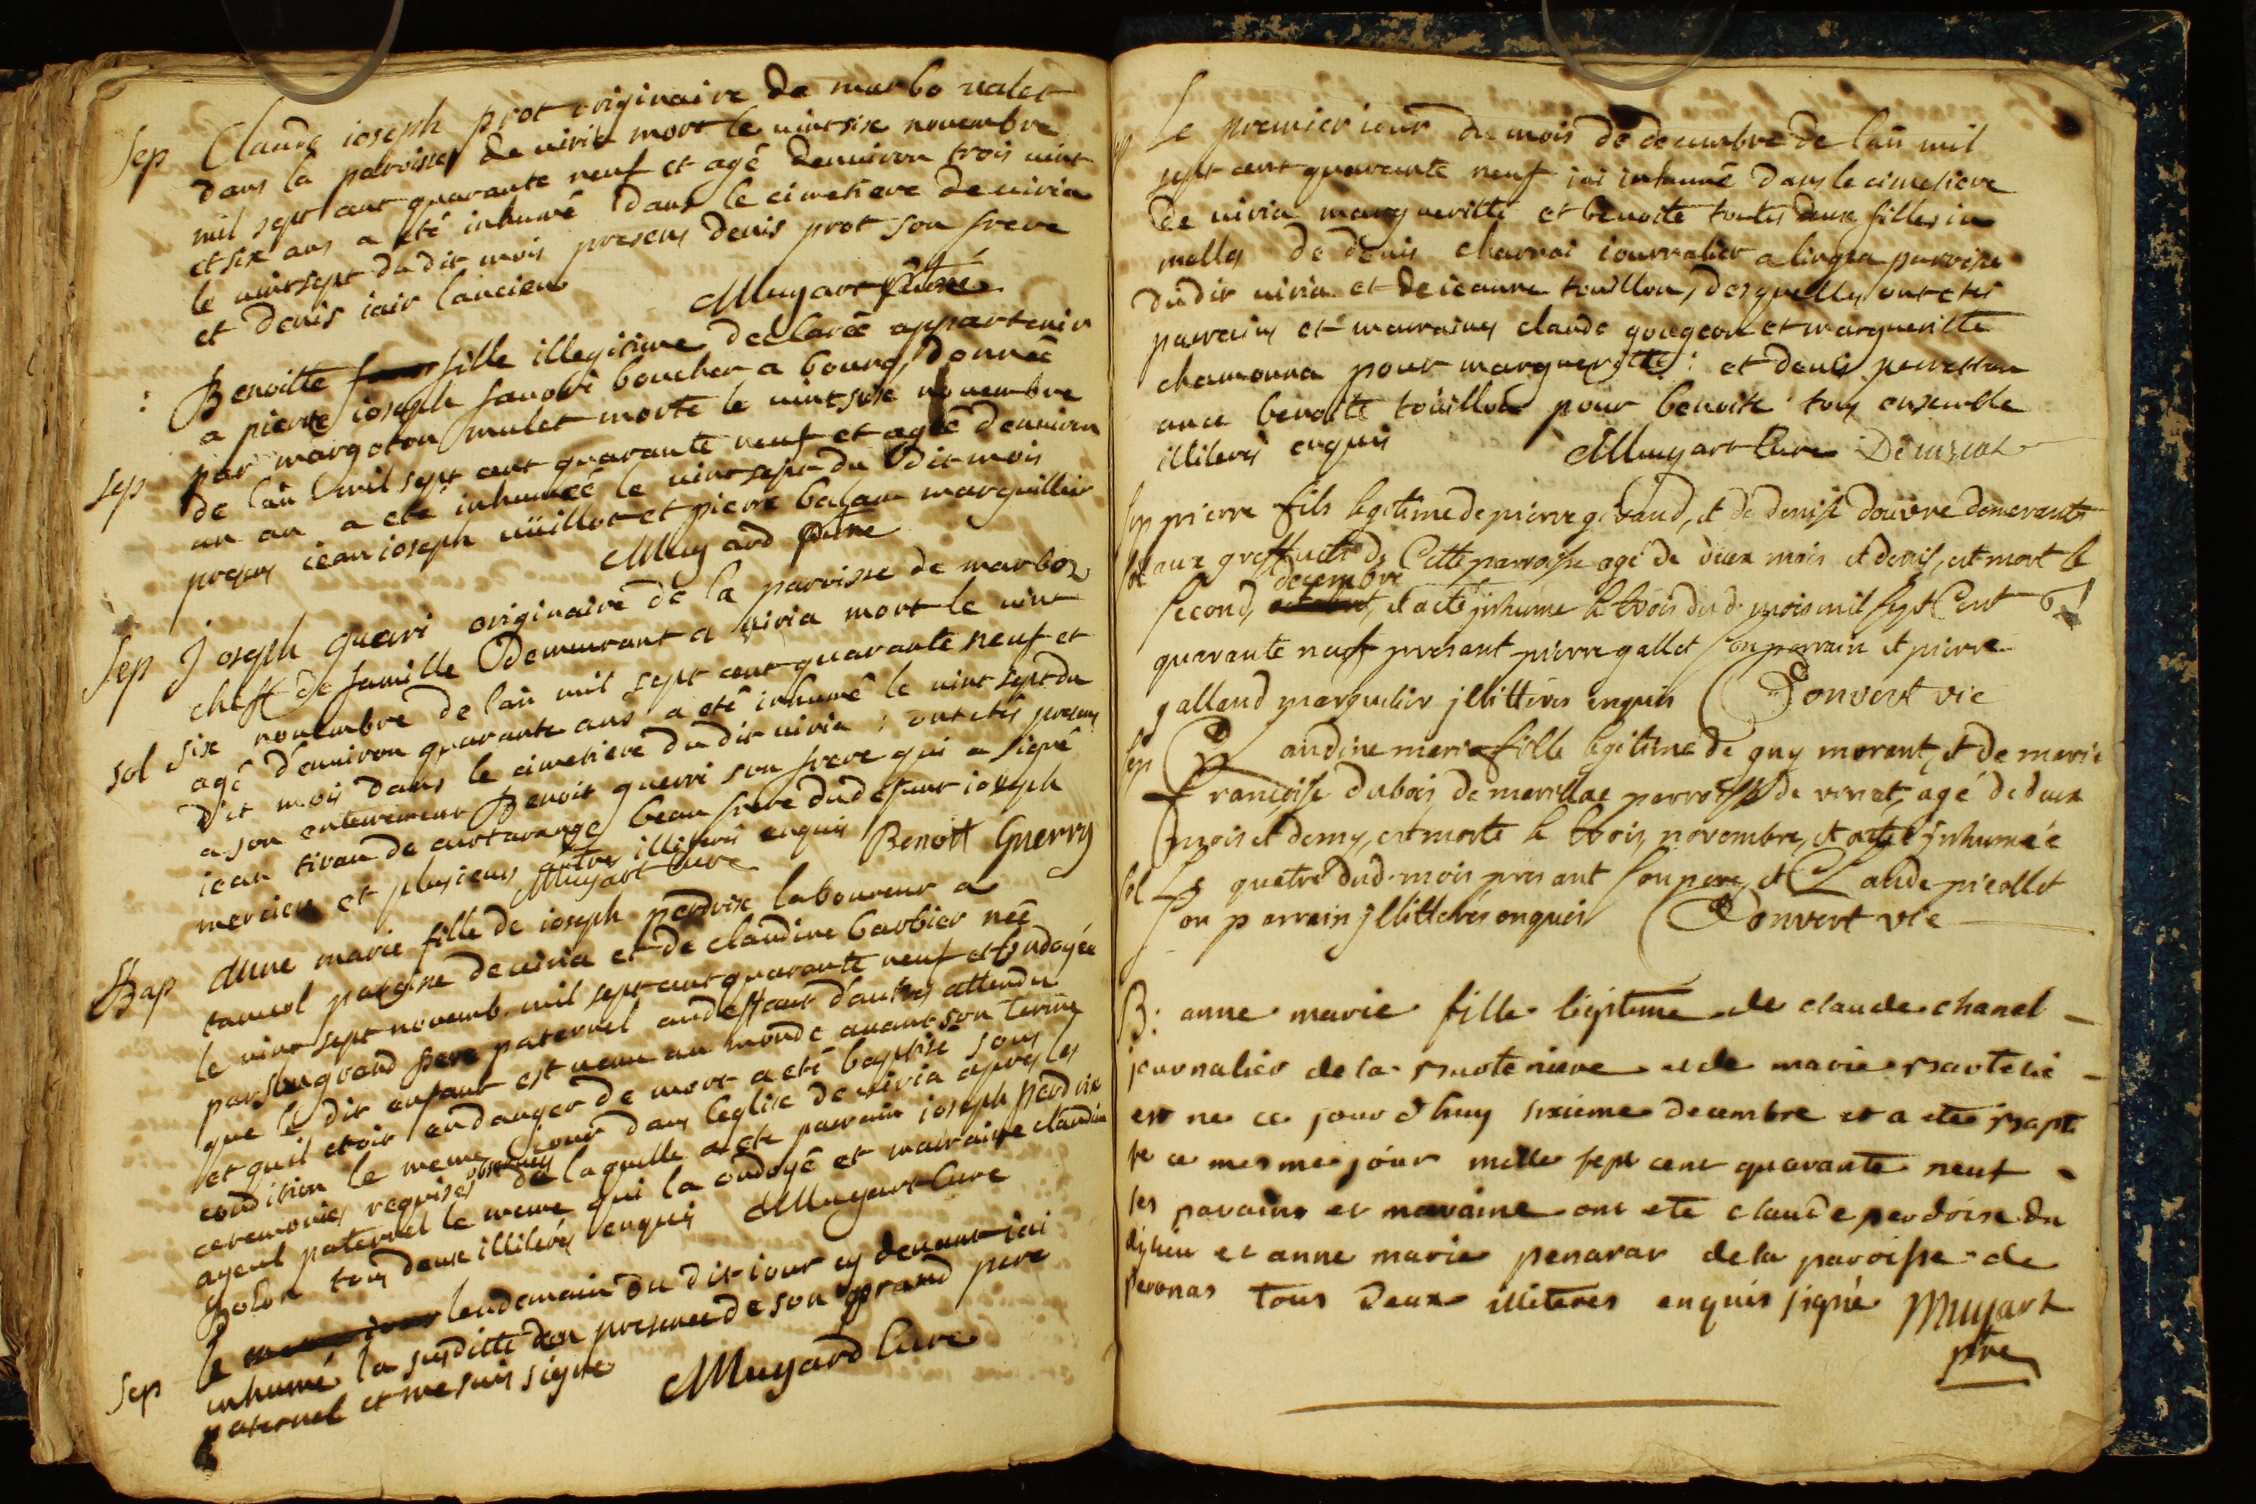 Sep Claude ioseph prot originaire de marbo valet
dans la paroisse de viria mort le vint six novembre
mil sept cent quarante neuf et agé denviron trois vint
et six ans a eté inhumé dans le cimetiere de viria
le vint sept du dit mois presens denis prot son frere
et denis iair lancien
Muyart
: Benoitte fille illegitime declarée appartenir
a pierre ioseph boucher a bourg, donnée
par margoton mulet morte le vint six novembre
Sep de lañ mil sept cent quarante neuf et agée denviron
un an a eté inhumée le vint sept du dit mois
presens iean ioseph et pierre balam marguillier
Muyard ptre
Sep Joseph guerri originaire de la paroisse de marboz
cheff de famille demeurant a viria mort le vint
sol six novembre de lañ mil sept cent quarante neuf et
agé d'environ quarante ans a eté inhumé le vint sept du
dit mois dans le cimetiere du dit viria ; ont etés presens
a son enterrement Benoit guerri son frere qui a signé
iean tiran de curtarange beau frere du defunt ioseph
mercier et plusieurs autres illiterés enquis Benoit Guerry
Muyart cure
Bap Anne marie fille de ioseph perdrix laboureur a
tanvol paroisse de viria et de claudine barbier née
le vint sept novemb. mil sept cent quarante neuf et ondoyée
par son grand pere paternel au deffaut d'autres attendu
que le dit enfant est venu au monde avant son terme
et quil etoit en danger de mort a eté baptisé sous
condition le meme jour dans leglise de viria apres les
ceremonies requises observees de laquelle a eté parrain ioseph perdrix
ayeul paternel le meme qui la ondoyé et marraine claudine
tous deux illiterés enquis Muyart Cure
le lendemain du dit iour cy devant iai
Sep inhumé la susditte en presence de son grand pere
paternel et me suis signé Muyard Cure
Le premier iour du mois de decembre de lañ mil
sept cent quarante neuf iai inhumé dans le cimetiere
de viria margueritte et benoite toutes deux filles iu
melles de denis charnai iournalier a lingia paroisse
du dit viria et de ieanne touillon, desquelles ont etés
parrains et marraines claude gougeon et marguerittte
chamonna pour marguerite : et denis
benoite touillon pour benoite tous ensemble
illiterés enquis Muyart Cure
Sep pierre fils legitime de pierre givaud, et de denise douvre demeurants
sol aux de Cette parroisse agé de deux mois et demis, est mort le
second, decembre et a eté inhumé le trois dud. mois mil sept Cent
quarante neuf presant pierre gallet son parrain et pierre
galland marguilier jllittérés enquis Convert vic
Sep Claudine marie fille legitime de guy morant, et de marie
françoise dubois de marillac parroisse de agé de deux
mois et demy, est morte le trois, novembre, et a eté jnhumée
sol Le quatre dud. mois presant son pere, et Claude picollet
son parrain jllittérés enquis Convert vic
B: anne marie fille legitime de claude chanel
journalier de la et de marie
est ne ce jour d huy sixieme decembre et a ete bapt
se ce mesme jour mille sept cent quarante neuf
ses parains et maraine ont ete claude perdrix du
et anne marie penarar de la paroisse de
peronas tous deux illiteres enquis signé Muyart
ptre